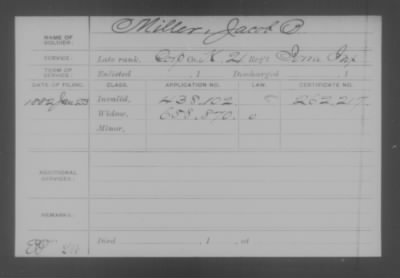 NAME OF SOLDIER: Miller, Jacob
SERVICE: Late rank, Corp Co. K, 21 Reg't Iowa Inf
TERM OF SERVICE: Enlisted , 1 Discharged , 1
DATE OF FILING. CLASS. APPLICATION NO. LAW. CERTIFICATE NO.
1882 Jan Invalid, 438.102 262.217
Widow, 688.870
Minor,
ADDITIONAL SERVICES:
REMARKS:
Died , 1 , at